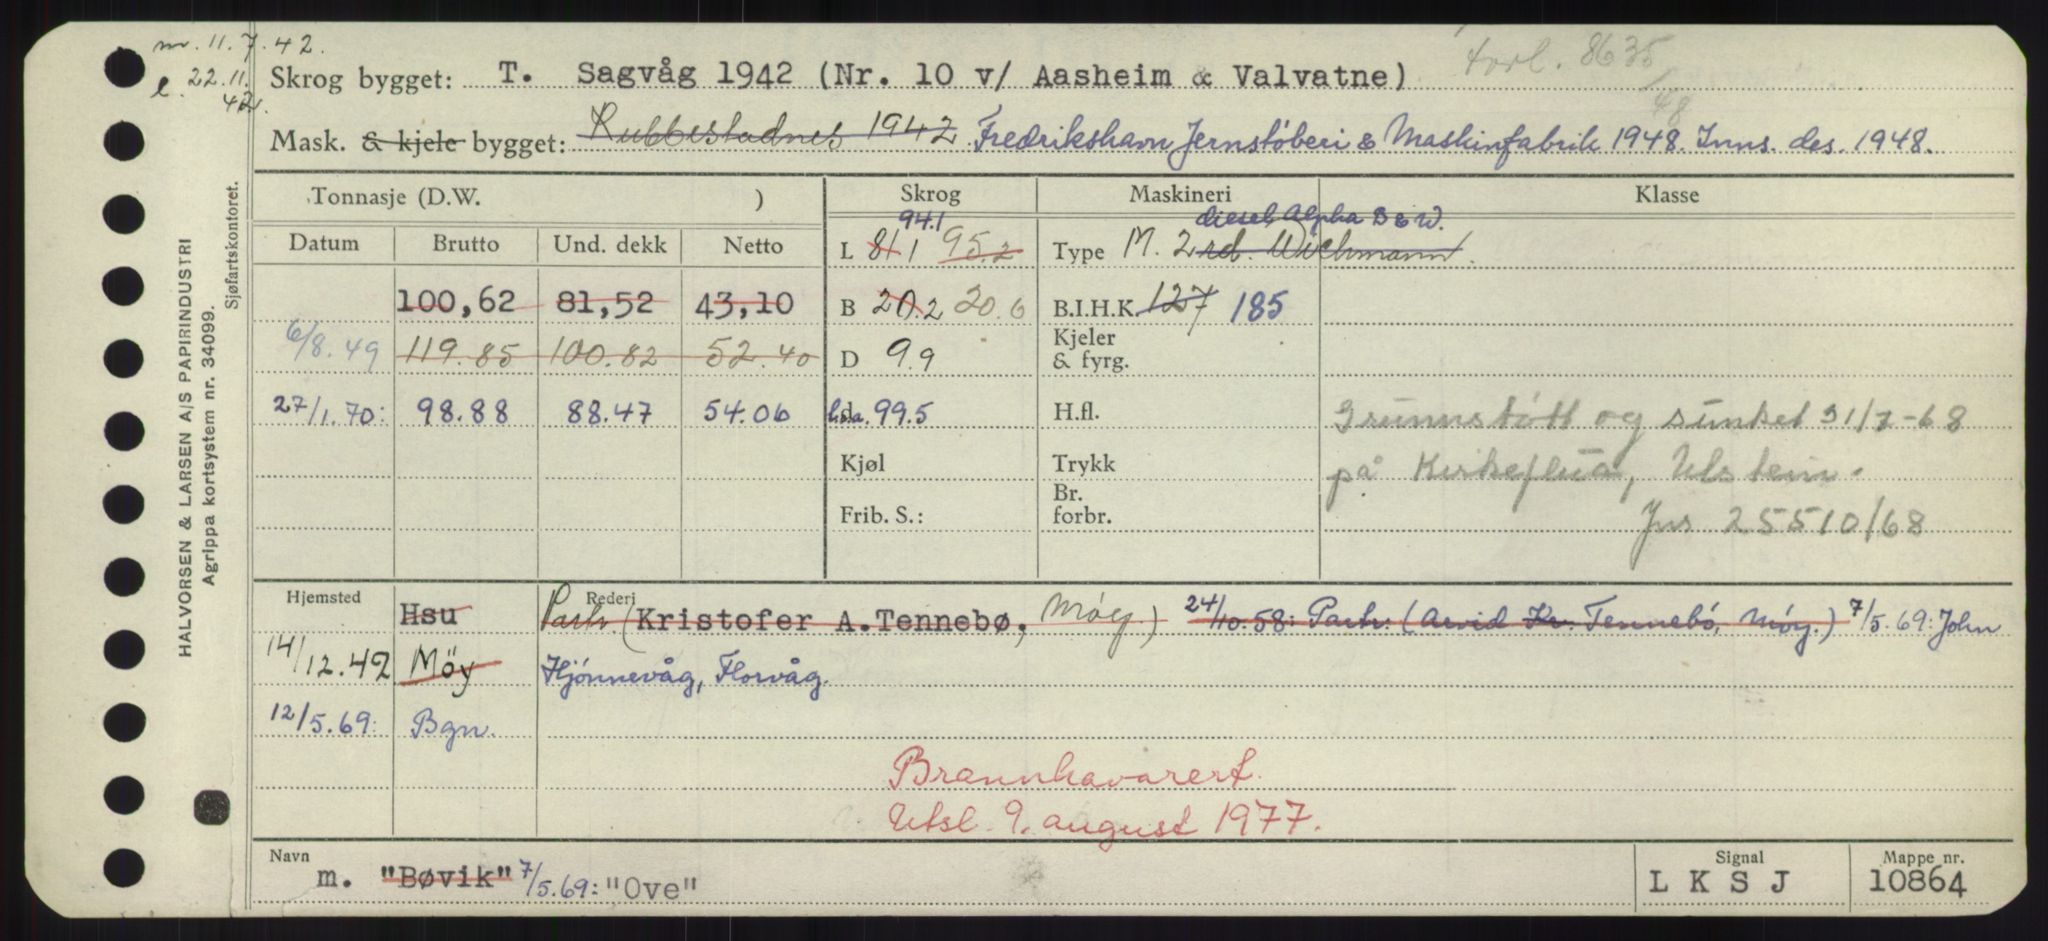 m. 11.7.42.
l. 22.11.
42.
forl. 8635
/48
Skrog bygget: T. Sagvåg 1942 (Nr. 10 v/ Aasheim & Valvatne)
Mask. & kjele bygget: Rubbestadnes 1942 Fredrikshavn Jernstøberi & Maskinfabrik 1948. Inns. des. 1948.
HALVORSEN & LARSEN A/S PAPIRINDUSTRI
Agrippa kortsystem nr. 34099.
Sjøfartskontoret.
Tonnasje (D.W. ) Skrog Maskineri Klasse
94.1 diesel Alpha B & W.
Datum Brutto Und. dekk Netto L 81.1 95.2 Type M. 2 rd. Wichmann.
100,62 81,52 43,10 B 20.2 20.6 B.I.H.K. 127 185
6/8.49 119.85 100.82 52.40 D 9.9 Kjeler & fyrg.
27/1.70: 98.88 88.47 54.06 d. l.o.a. 99.5 H.fl. Grunnstøtt og sunket 31/7-68
Kjøl Trykk på Kirkeflua, Ulstein.
Frib. S.: Br. forbr. Jns 25510/68
Hjemsted Rederi
Hsu Partr. (Kristofer A. Tennebø, Møy.) 24/10.58: Partr. (Arvid Kr. Tennebø, Møy.) 7/5.69: John
14/12.42 Möy Hjønnevåg, Florvåg.
12/5.69: Bgn.
Brannhavarert.
Utsl. 9. august 1977.
Navn Signal Mappe nr.
m. "Bøvik" 7/5.69: "Ove" L K S J 10864